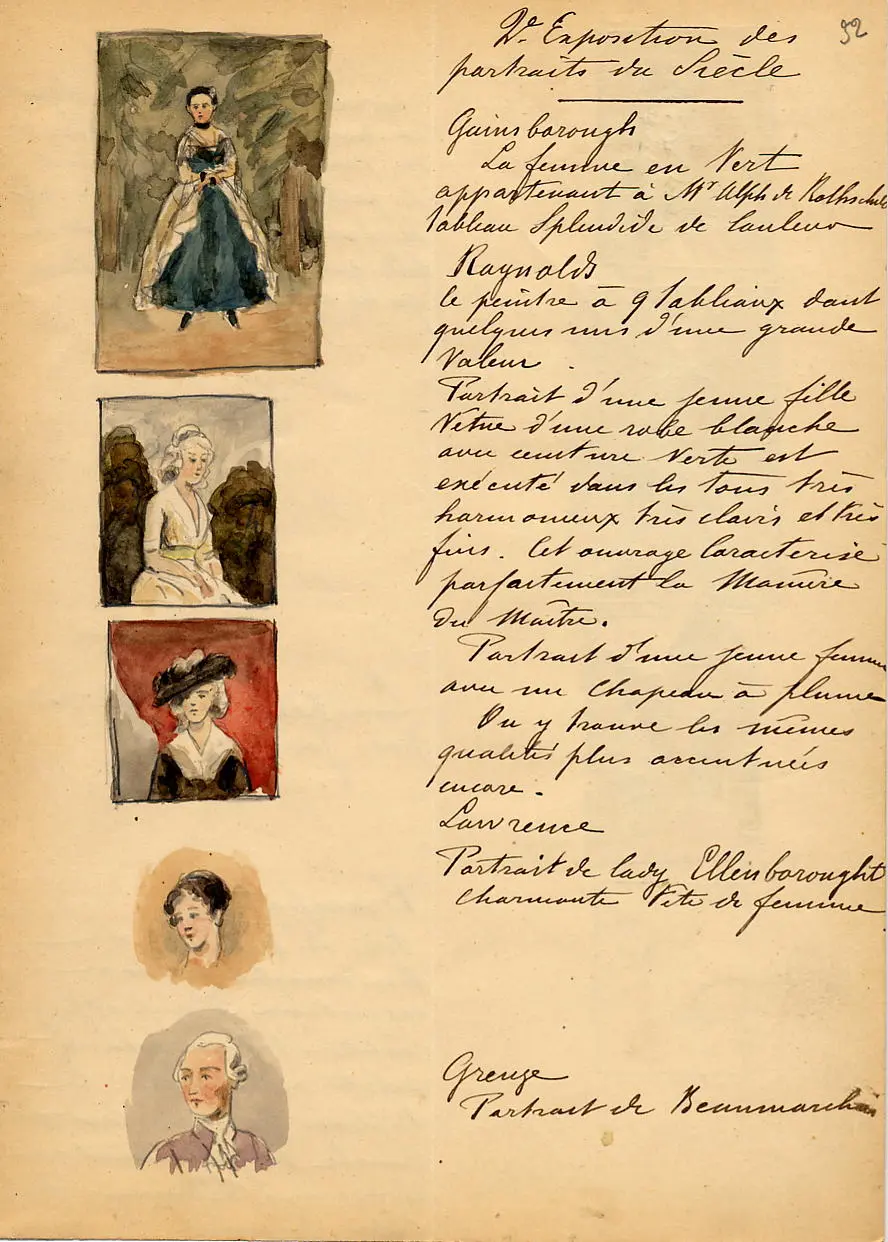 52
De Exposition des
portraits du Siècle
Gainsborough
La femme en Vert
appartenant à Mr Alph de Rothschild
tableau Splendide de Couleur
Raynolds
le peintre à 9 tableaux dont
quelques uns d'une grande
Valeur.
Portrait d'une jeune fille
Vêtue d'une robe blanche
avec ceinture Verte est
exécuté dans les tons très
harmonieux très clairs et très
fins. Cet ouvrage Caractérise
parfaitement la Manière
du Maître.
Portrait d'une jeune femme
avec un Chapeau à plume
On y trouve les mêmes
qualités plus accentuées
encore.
Lawrence
Portrait de lady Ellenborought
Charmante Tête de femme
Greuze
Portrait de Beaumarchais